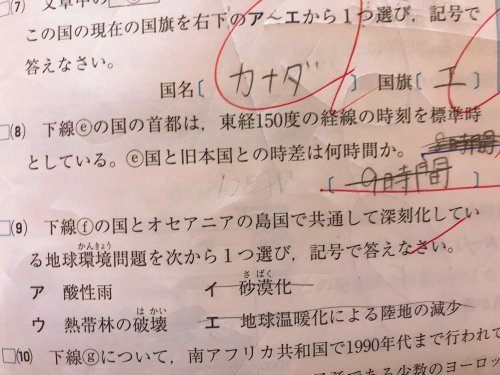 (7) 文章中の
この国の現在の国旗を右下のア～エから1つ選び，記号で
答えなさい。
国名〔 カナダ 〕 国旗〔 エ
(8) 下線ⓔの国の首都は，東経150度の経線の時刻を標準時
としている。ⓔ国と旧本国との時差は何時間か。
〔 9時間
(9) 下線ⓕの国とオセアニアの島国で共通して深刻化してい
かんきょう
る地球環境問題を次から1つ選び，記号で答えなさい。
さばく
ア 酸性雨 イ 砂漠化
はかい
ウ 熱帯林の破壊 エ 地球温暖化による陸地の減少
(10) 下線ⓖについて，南アフリカ共和国で1990年代まで行われて
少数のヨーロッ